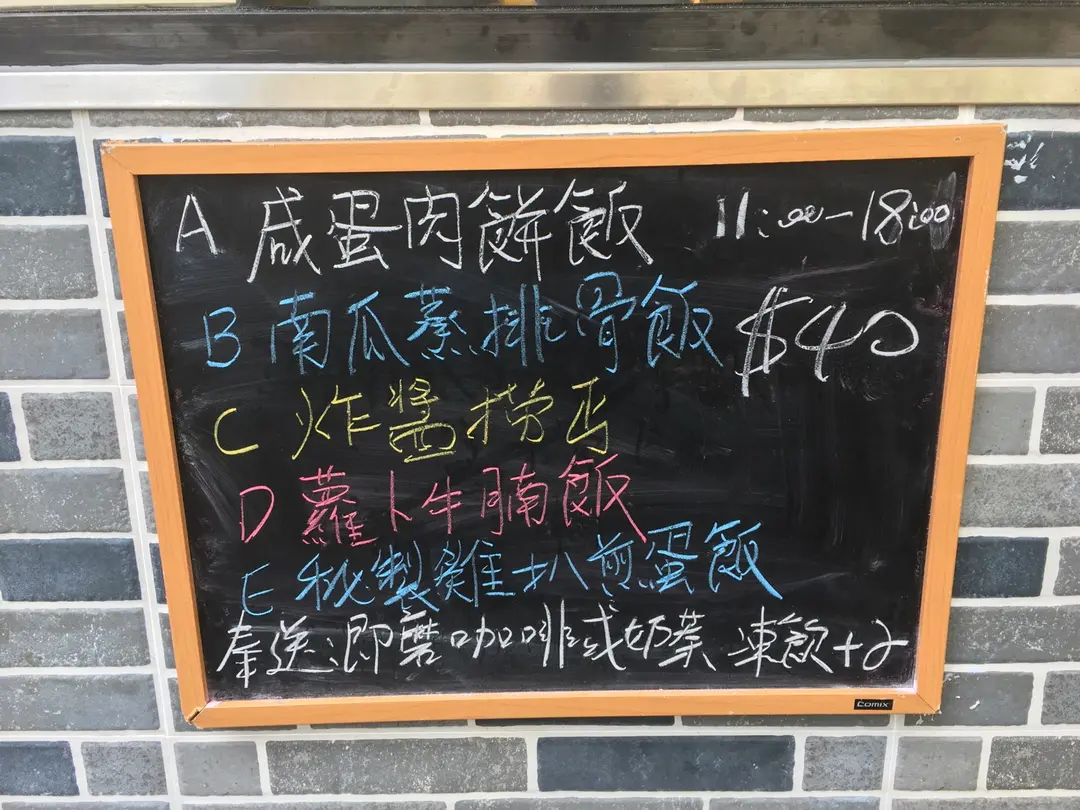 A 咸蛋肉餅飯 11:00-18:00
B 南瓜蒸排骨飯 $40
C 炸醬撈丐
D 蘿卜牛腩飯
E 秘製雞扒煎蛋飯
奉送:即磨咖啡或奶茶 凍飲+2
COMIX